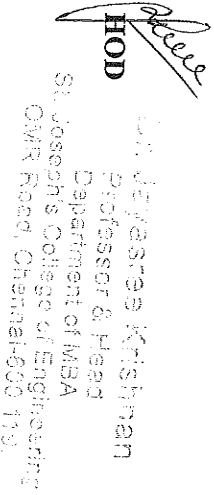 HOD
Dr. Jayasree Krishnan
Professor & Head
Department of MBA
St. Joseph's College of Engineering
OMR Road, Chennai-600 119.